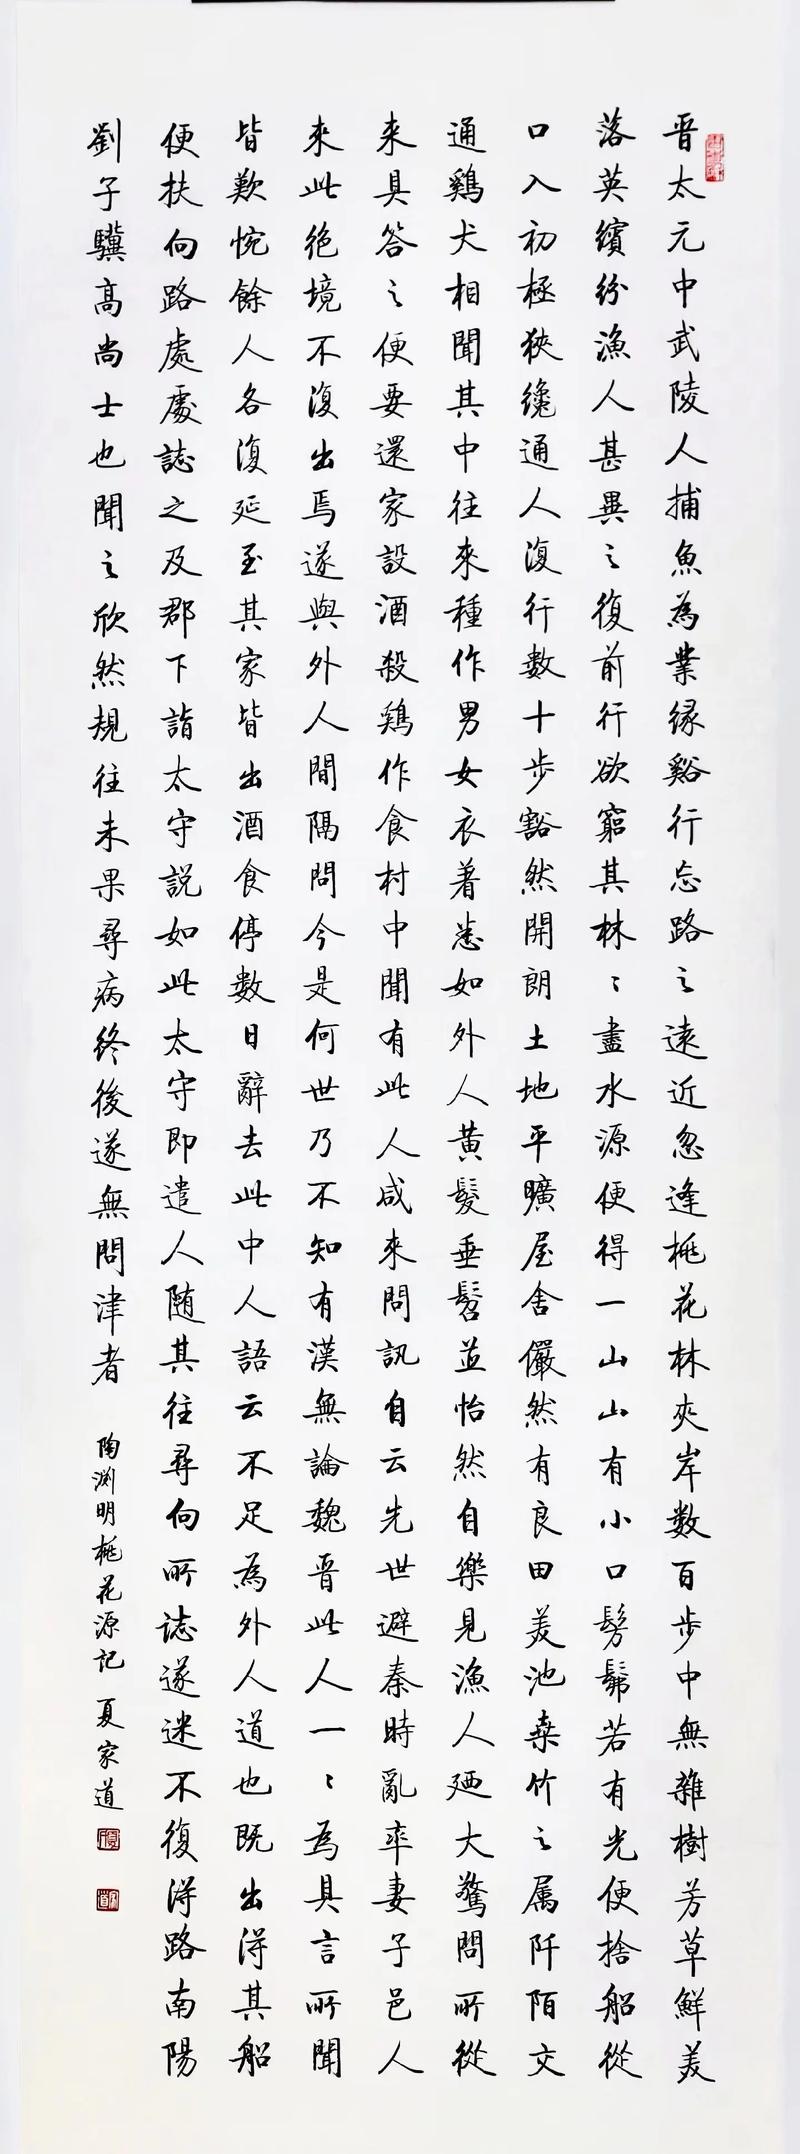 晋太元中武陵人捕魚為業緣谿行忘路之遠近忽逢桃花林夾岸数百步中無雜樹芳草鮮美
落英繽紛漁人甚異之復前行欲窮其林〻盡水源便得一山山有小口髣髴若有光便捨船從
口入初極狹纔通人復行数十步豁然開朗土地平曠屋舍儼然有良田美池桑竹之属阡陌交
通鷄犬相聞其中往來種作男女衣着悉如外人黄髮垂髫並怡然自樂見漁人廼大驚問所從
来具答之便要還家設酒殺鷄作食村中聞有此人咸來問訊自云先世避秦時亂率妻子邑人
來此絶境不復出焉遂與外人間隔問今是何世乃不知有漢無論魏晋此人一〻為具言所聞
皆歎惋餘人各復延至其家皆出酒食停数日辭去此中人語云不足為外人道也既出得其船
便扶向路處處誌之及郡下詣太守説如此太守即遣人随其往尋向所誌遂迷不復得路南陽
劉子驥高尚士也聞之欣然規往未果尋病終後遂無問津者
陶渊明桃花源記 夏家道